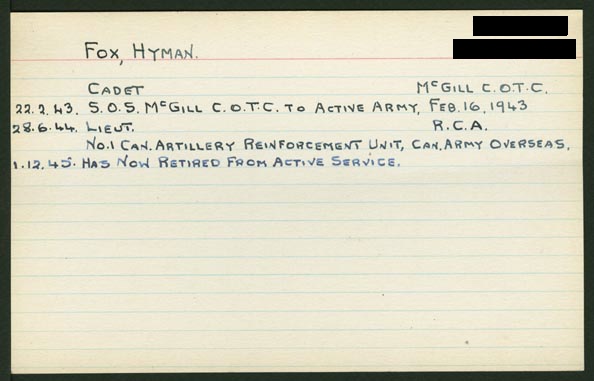 Fox, Hyman.
Cadet McGill C.O.T.C.
22.2.43. S.O.S. McGill C.O.T.C. to Active Army, Feb. 16, 1943
28.6.44. Lieut. R.C.A.
No.1 Can. Artillery Reinforcement Unit, Can. Army Overseas.
1.12.45. Has Now Retired From Active Service.